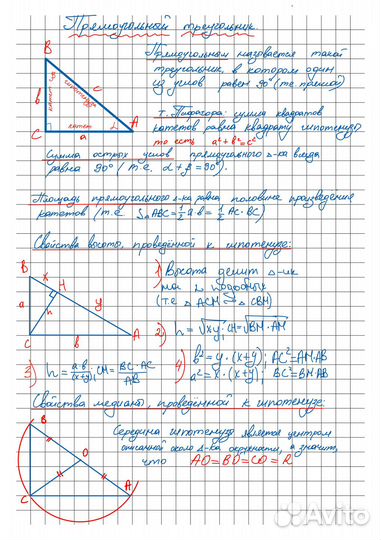 Прямоугольный треугольник.
B
b
C
a
A
c
катет
гипотенуза
катет
α
Прямоугольным называется такой
треугольник, в котором один
из углов равен 90° (те прямой)
т. Пифагора: сумма квадратов
катетов равна квадрату гипотенузы
то есть a²+b²=c²
Сумма острых углов прямоугольного Δ-ка всегда
равна 90° (т.е. α+β=90°).
Площадь прямоугольного Δ-ка равна половине произведения
катетов (т.е. SΔABC=½a·b=½AC·BC)
Свойства высоты, проведённой к гипотенузе:
B
x
H
a
h
y
C
b
A
1) Высота делит Δ-ик
на 2 подобных
(т.е Δ ACM Δ CBM)
2) h=√xy; CM=√BM·AM
3) h=a·b/(x+y); CM=BC·AC/AB
4) b²=y·(x+y); AC²=AM·AB
a²=x·(x+y); BC²=BM·AB
Свойства медианы, проведенной к гипотенузе:
B
O
C
A
Середина гипотенузы является центром
описанной около Δ-ка окружности, а значит,
что AO=BO=CO=R
Avito